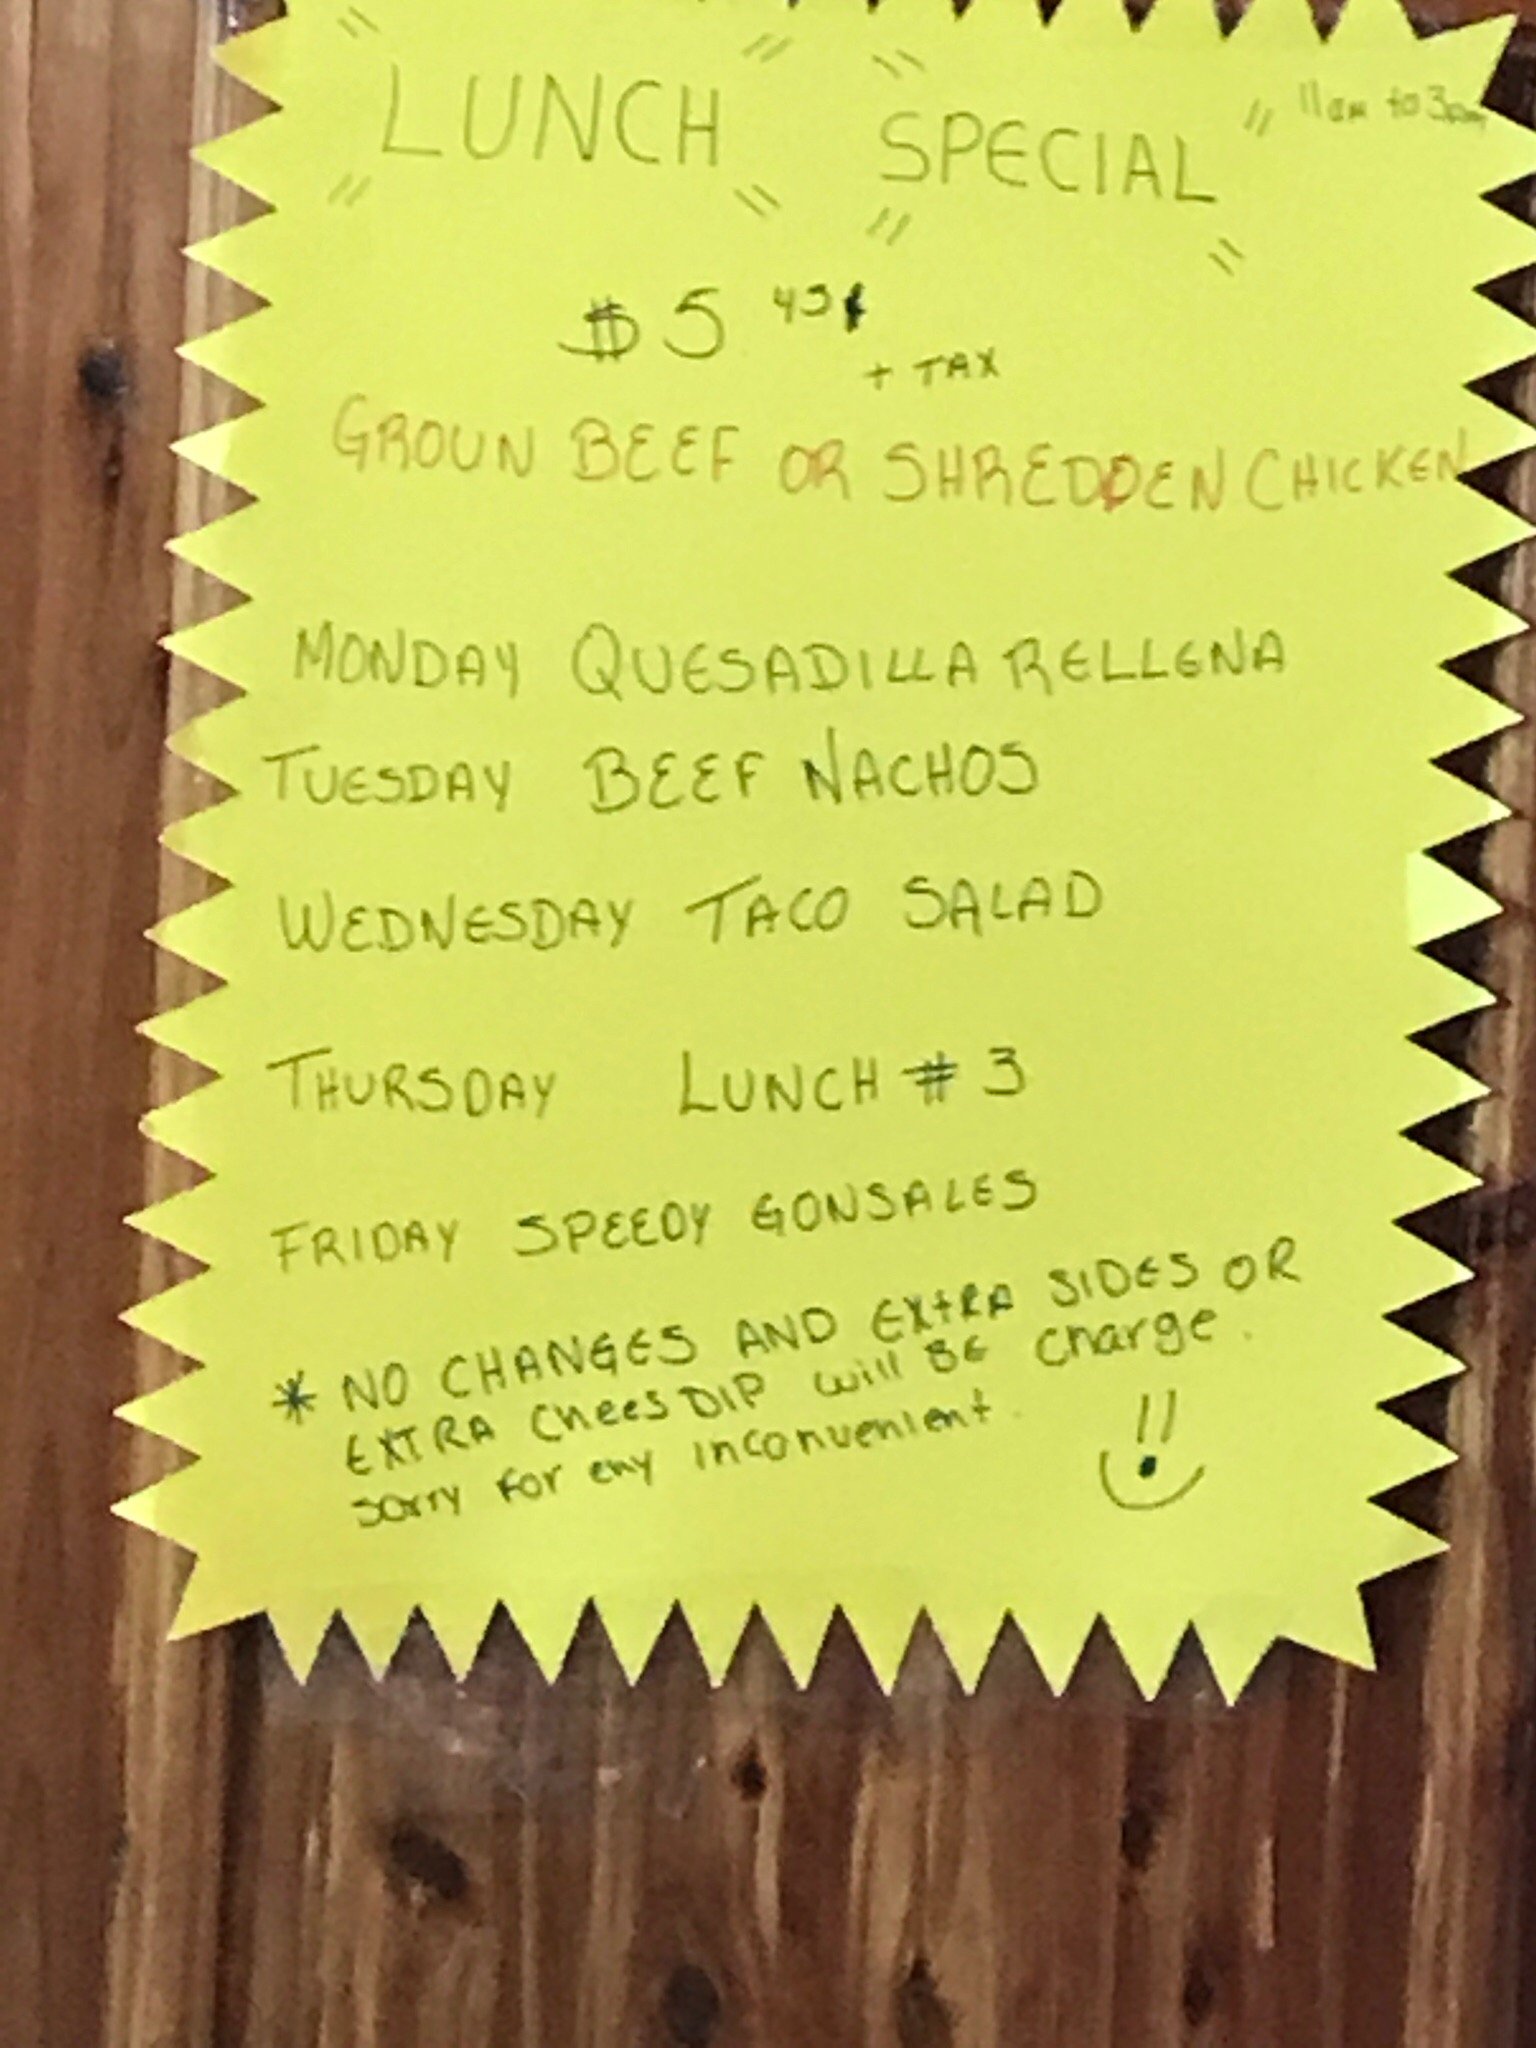 LUNCH SPECIAL 11am to 3pm
$5 45¢
+ TAX
GROUN BEEF OR SHREDDEN CHICKEN
MONDAY QUESADILLA RELLENA
TUESDAY BEEF NACHOS
WEDNESDAY TACO SALAD
THURSDAY LUNCH # 3
FRIDAY SPEEDY GONSALES
* NO CHANGES AND EXTRA SIDES OR
EXTRA CHEES DIP will BE charge.
sorry for eny inconvenient.